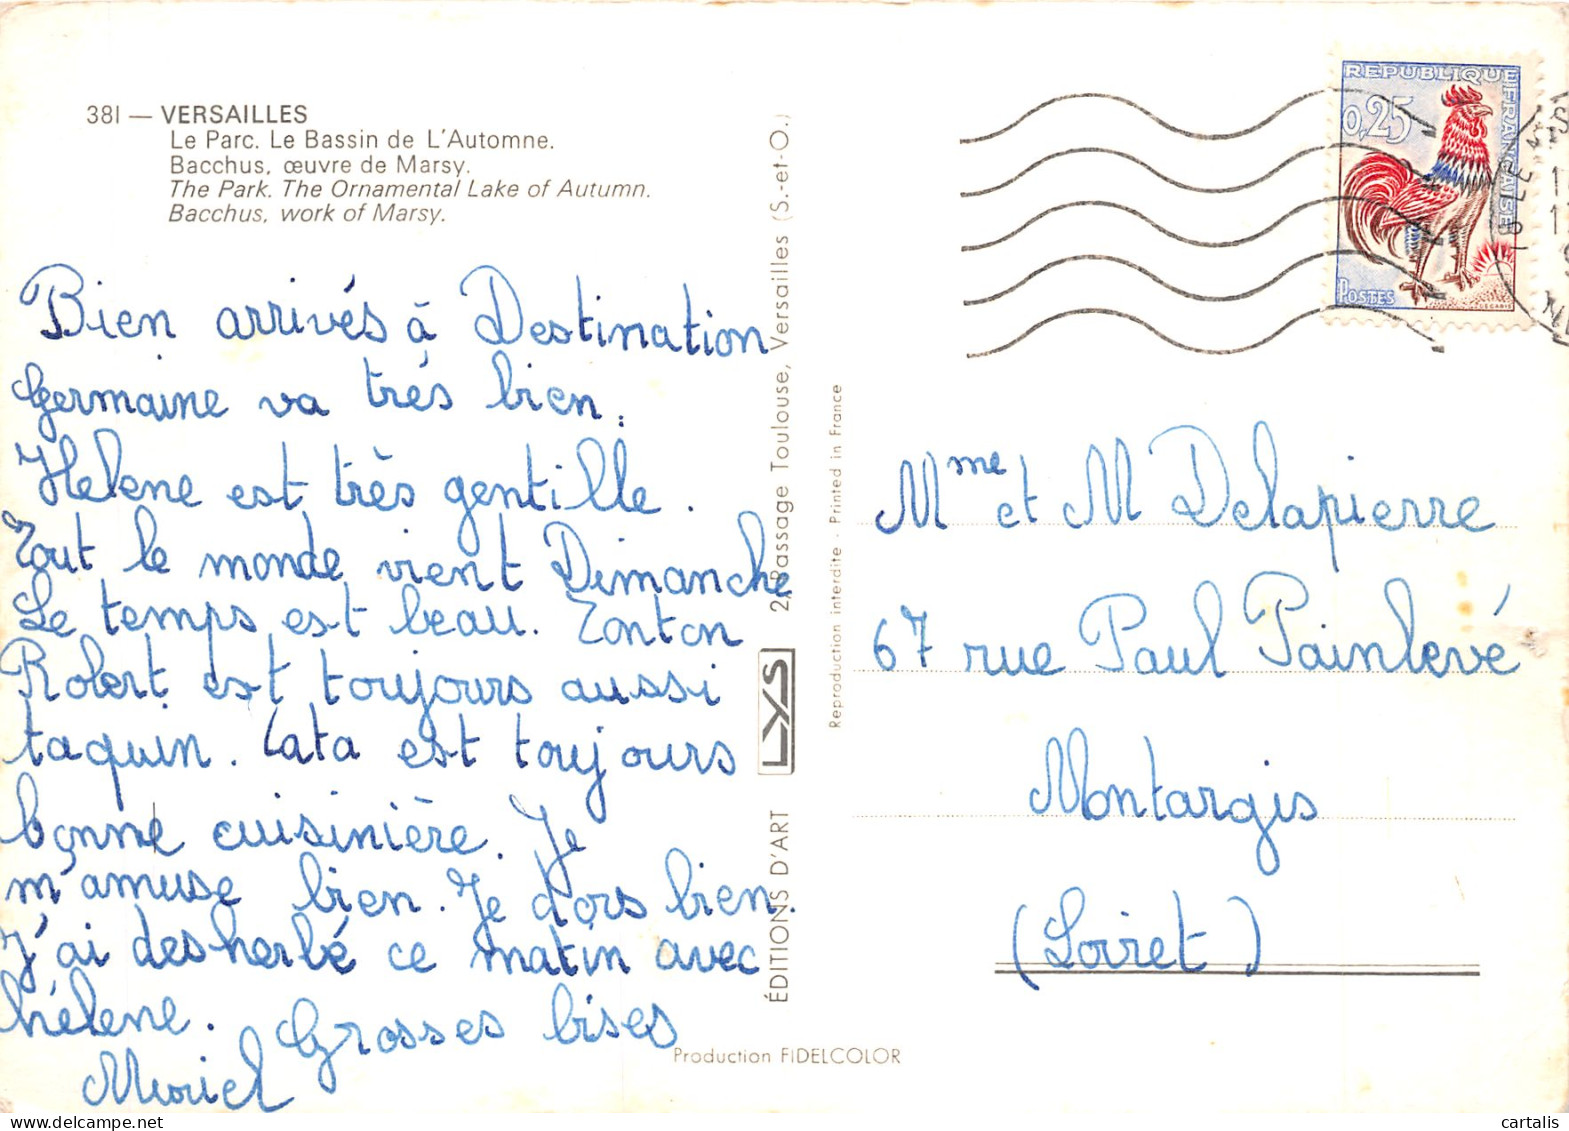 381 — VERSAILLES
Le Parc. Le Bassin de L'Automne.
Bacchus, œuvre de Marsy.
The Park. The Ornamental Lake of Autumn.
Bacchus, work of Marsy.
Bien arrivés à Destination
Germaine va très bien.
Helene est très gentille.
Tout le monde vient Dimanche
Le temps est beau. Tonton
Robert est toujours aussi
taquin. tata est toujours
bonne cuisinière. Je
m'amuse bien. Je dors bien.
J'ai desherbé ce matin avec
hélène. Grosses bises
Muriel
ÉDITIONS D'ART LYS 2, Passage Toulouse, Versailles (S.-et-O.)
Reproduction interdite · Printed in France
Production FIDELCOLOR
REPUBLIQUE FRANÇAISE
0,25
POSTES
Mme et M Delapierre
67 rue Paul Painlevé
Montargis
(Loiret)
cartalis